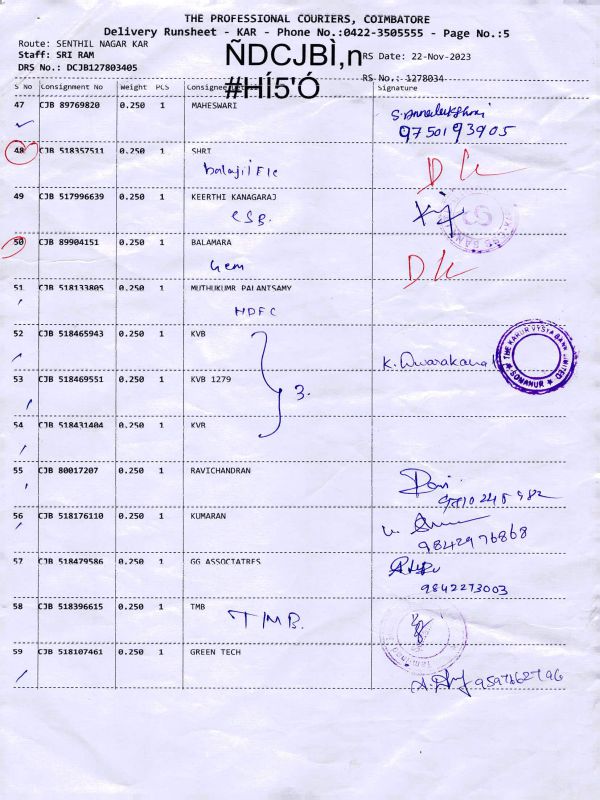 THE PROFESSIONAL COURIERS, COIMBATORE
Delivery Runsheet - KAR - Phone No.:0422-3505555 - Page No.:5
Route: SENTHIL NAGAR KAR
Staff: SRI RAM
ÑDCJBÌ,n
RS Date: 22-Nov-2023
DRS No.: DCJB127803405
#HÍ5'Ó
RS No.: 1278034
S No Consignment No Weight PCS Consignee Signature
47 CJB 89769820 0.250 1 MAHESWARI
9750193905
48 CJB 518357511 0.250 1 SHRT
balaji
49 CJB 517996639 0.250 1 KEERTHI KANAGARAJ
CSB.
50 CJB 89904151 0.250 1 BALAMARA
Gem
51 CJB 518133805 0.250 1 MUTHUKUMR PALANTSAMY
HDFC
52 CJB 518465943 0.250 1 KVB
THE KARUR VYSYA BANK LIMITED
SOMANUR
53 CJB 518469551 0.250 1 KVB 1279
3.
54 CJB 518431404 0.250 1 KVB
55 CJB 80017207 0.250 1 RAVICHANDRAN
56 CJB 518176110 0.250 1 KUMARAN
9842976868
57 CJB 518479586 0.250 1 GG ASSOCTATRES
9842273003
58 CJB 518396615 0.250 1 TMB
TMB.
59 CJB 518107461 0.250 1 GREEN TECH
9597662796